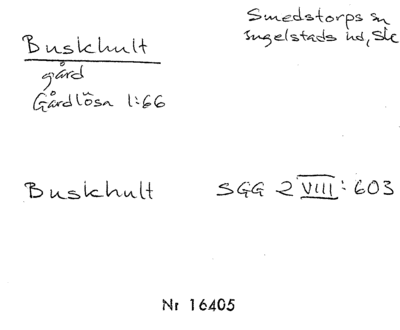 Smedstorps sn
Ingelstads hd, Sk
Buskhult
gård
Gårdlösa 1:66
Buskhult SGG 2 VIII: 603
Nr 16405